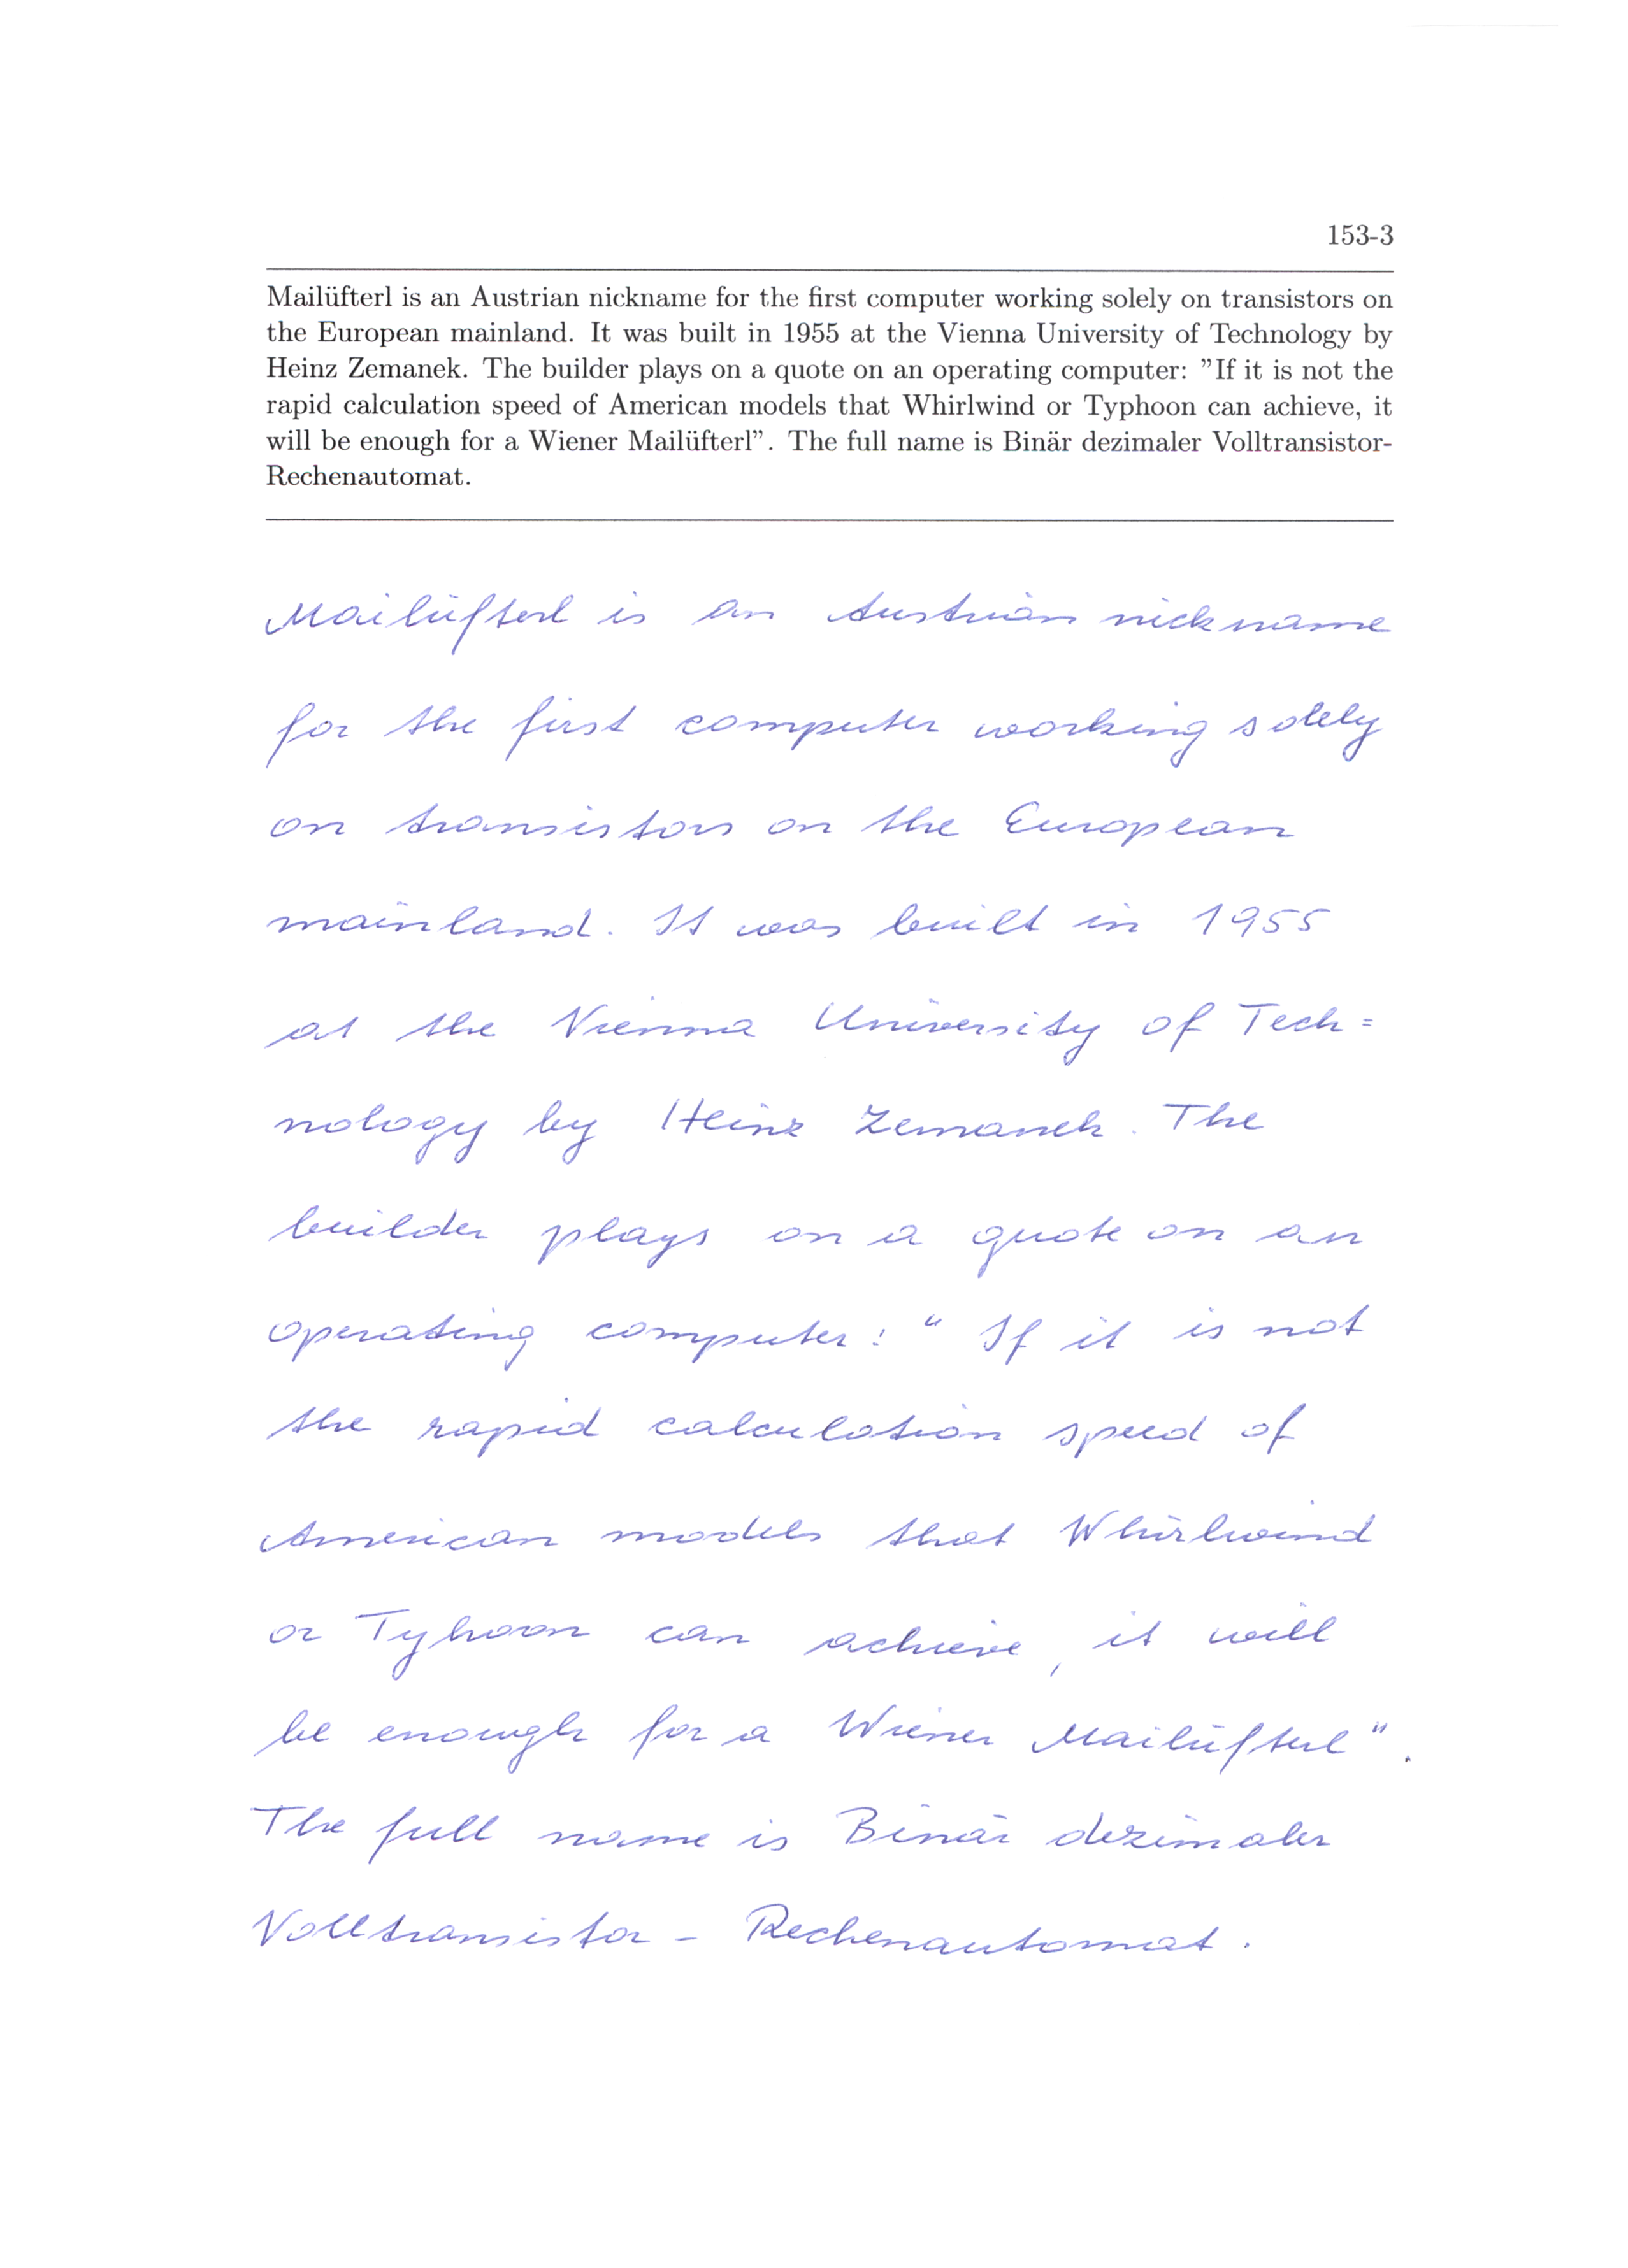 153-3
Mailüfterl is an Austrian nickname for the first computer working solely on transistors on
the European mainland. It was built in 1955 at the Vienna University of Technology by
Heinz Zemanek. The builder plays on a quote on an operating computer: ”If it is not the
rapid calculation speed of American models that Whirlwind or Typhoon can achieve, it
will be enough for a Wiener Mailüfterl”. The full name is Binär dezimaler Volltransistor-
Rechenautomat.
Mailüfterl is an Austrian nickname
for the first computer working solely
on transistors on the European
mainland. It was built in 1955
at the Vienna University of Tech=
nology by Heinz Zemanek. The
builder plays on a quote on an
operating computer: “ If it is not
the rapid calculation speed of
American models that Whirlwind
or Tyhoon can achieve, it will
be enough for a Wiener Mailüfterl".
The full name is Binär dezimaler
Volltransistor - Rechenautomat.